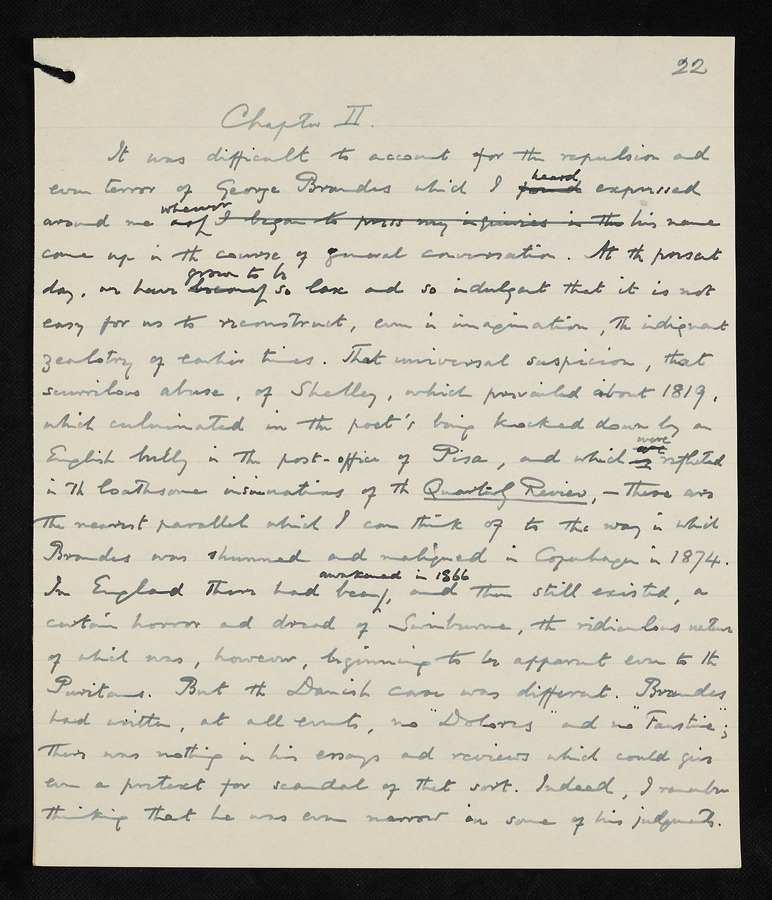 22
Chapter II.
It was difficult to account for the repulsion and
even terror of George Brandes which I found heard expressed
around me as if I began to press my inquiries in this whenever his name
came up in the course of general conversation. At the present
day, we have become grown to be so lax and so indulgent that it is not
easy for us to reconstruct, even in imagination, the indignant
zealotry of earlier times. That universal suspicion, that
scurrilous abuse, of Shelley, which prevailed about 1819,
which culminated in the poet's being knocked down by an
English bully in the post-office of Pisa, and which are were reflected
in the loathsome insinuations of the Quarterly Review, – these are
the nearest parallel which I can think of to the way in which
Brandes was shunned and maligned in Copenhagen in 1874.
In England there had been, awakened in 1866 and then still existed, a
certain horror and dread of Swinburne, the ridiculous nature
of which was, however, beginning to be apparent even to the
Puritans. But the Danish case was different. Brandes
had written, at all events, no "Dolores" and no "Faustine";
there was nothing in his essays and reviews which could give
even a pretext for scandal of that sort. Indeed, I remember
thinking that he was even narrow in some of his judgments.